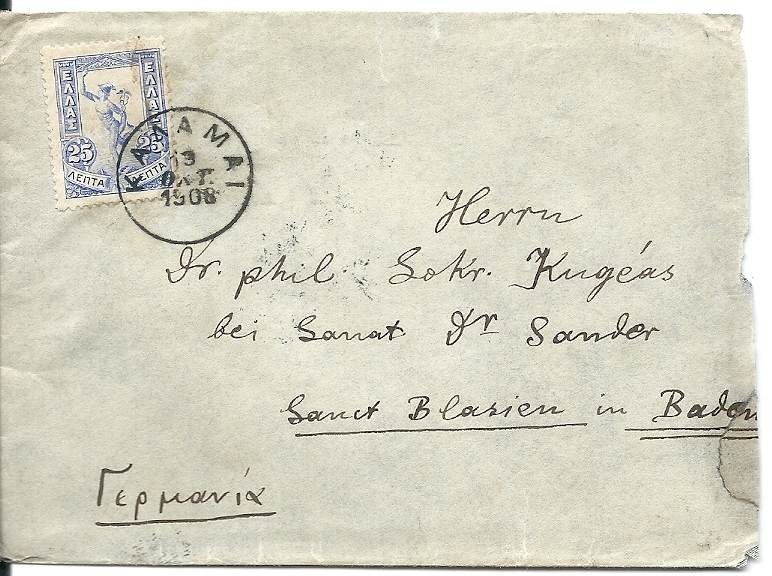 ΕΛΛΑΣ ΕΛΛΑΣ
25 25
ΛΕΠΤΑ ΛΕΠΤΑ
ΚΑΛΑΜΑΙ
ΟΚΤ.
1908
Herrn
Dr. phil. Sokr. Kugéas
bei Sanat Dr Sander
Sanct Blasien in Baden
Γερμανία